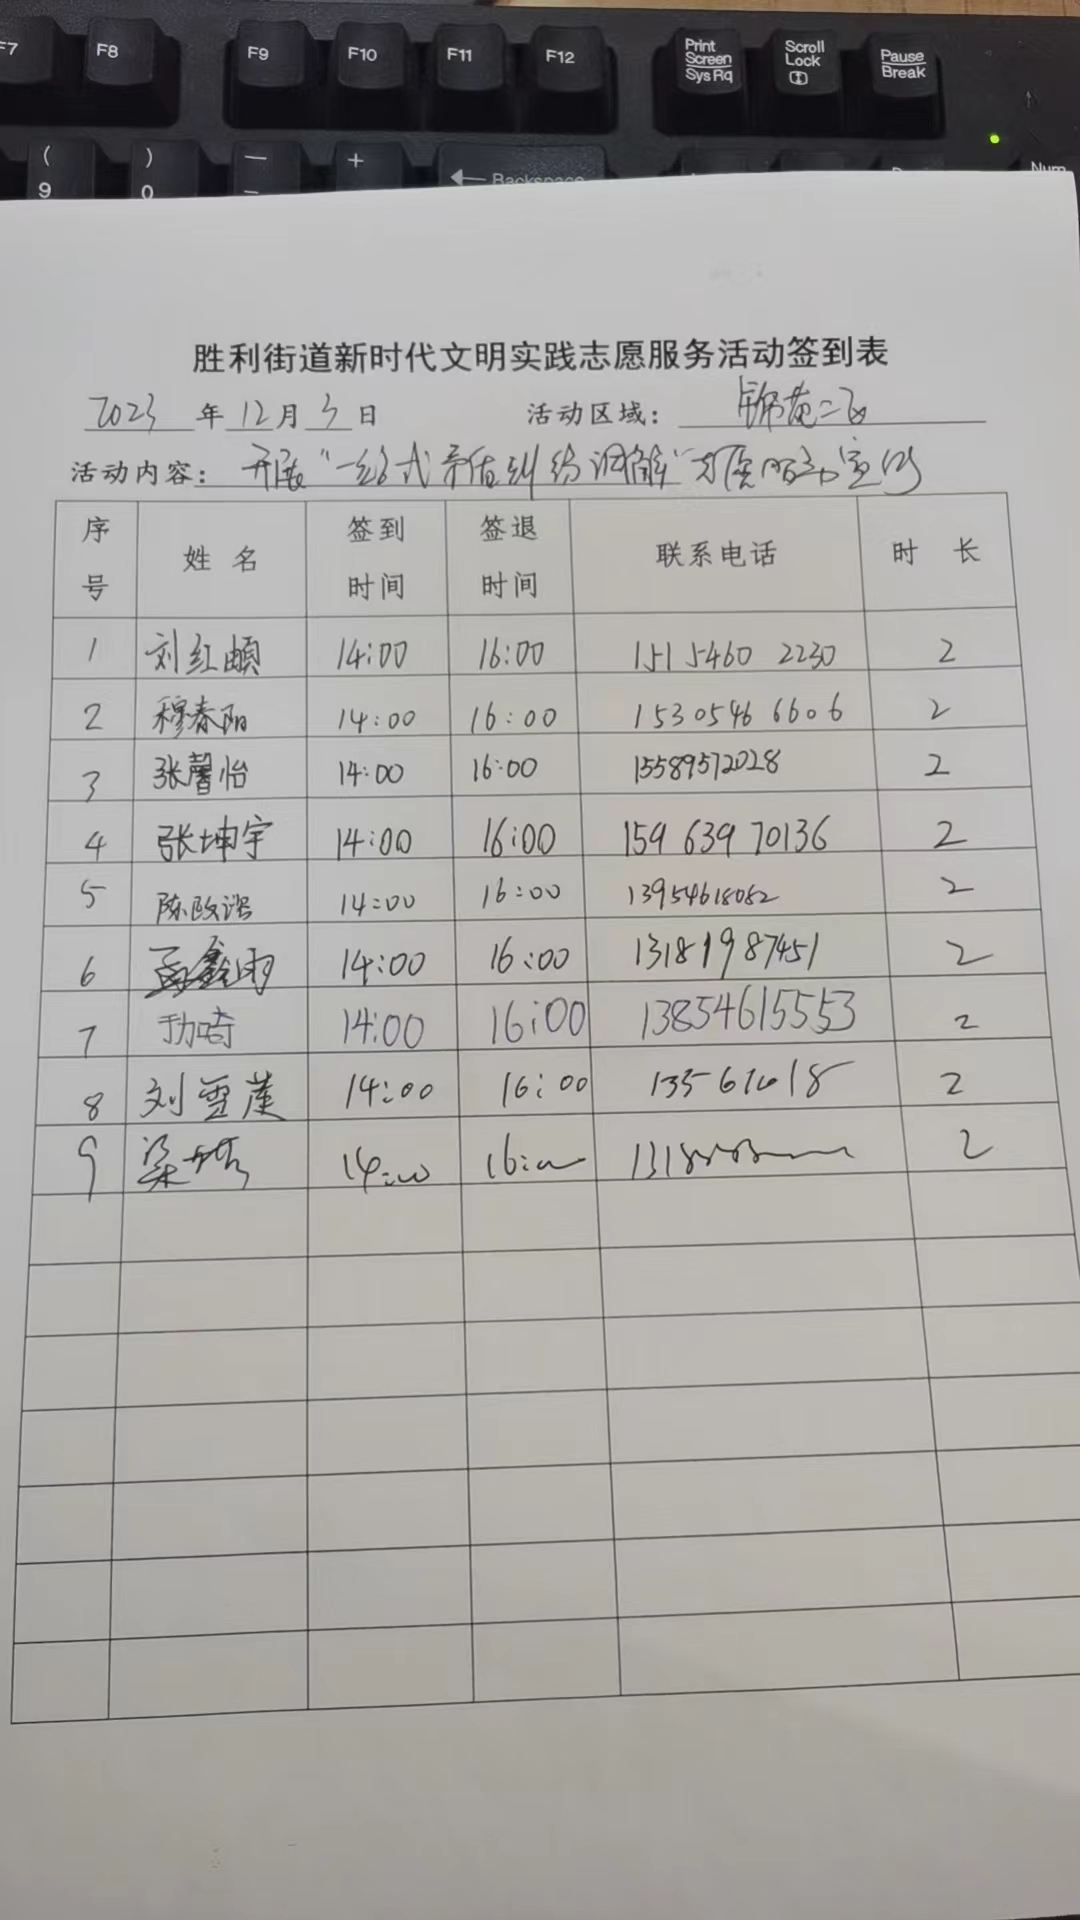 F7 F8 F9 F10 F11 F12 Print Screen SysRq Scroll Lock Pause Break
( ) — +
9 0 – ← Backspace Num
胜利街道新时代文明实践志愿服务活动签到表
2023 年 12 月 3 日 活动区域: 锦苑二
活动内容: 开展"一站式矛盾纠纷调解"志愿服务宣传
序号 姓名 签到时间 签退时间 联系电话 时长
1 刘红 14:00 16:00 15154602230 2
2 穆春阳 14:00 16:00 15305466606 2
3 张馨怡 14:00 16:00 15589572028 2
4 张坤宇 14:00 16:00 15963970136 2
5 陈 14:00 16:00 13954618082 2
6 鑫雨 14:00 16:00 13181987451 2
7 14:00 16:00 13854615553 2
8 刘雪莲 14:00 16:00 2
9 梁 14:00 16:00 2